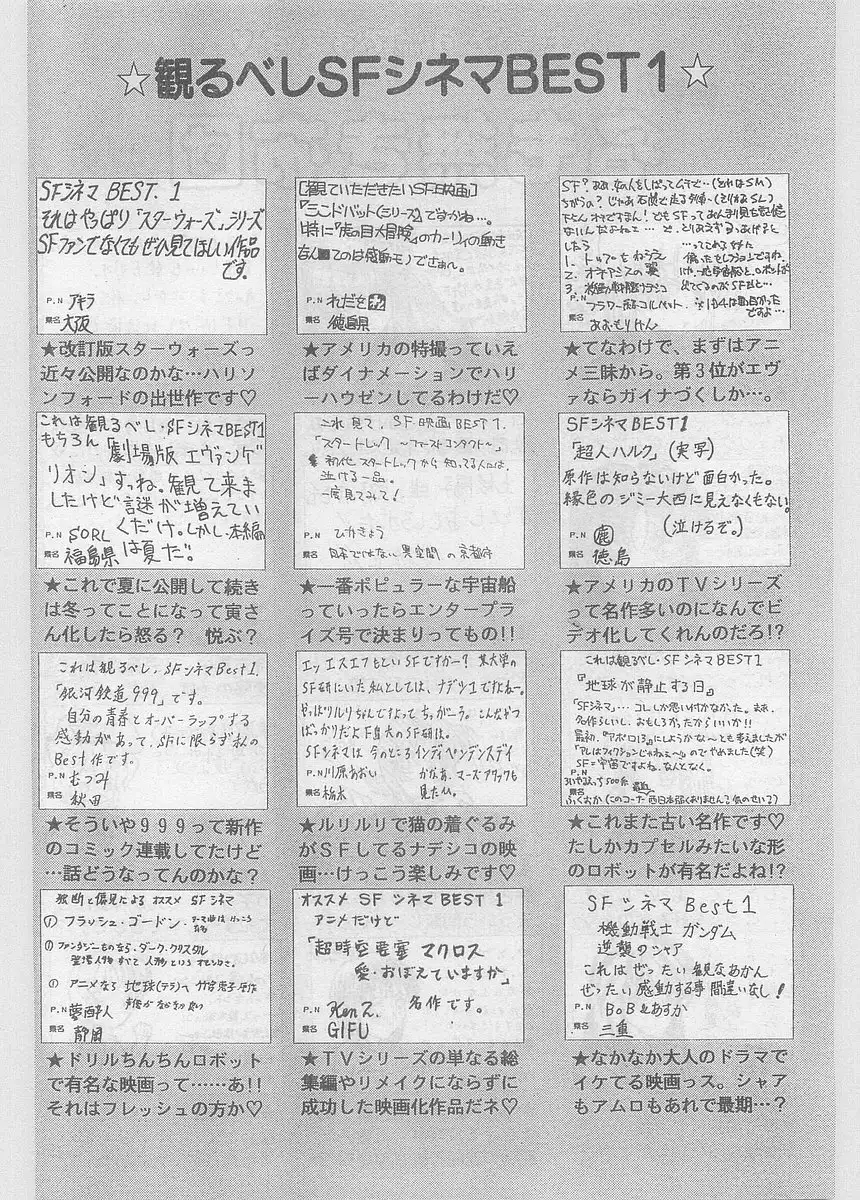 ☆観るべしSFシネマBEST1☆
SFシネマ BEST. 1
それはやっぱり「スターウォーズ」シリーズ
SFファンでなくてもぜひ見てほしい作品
です。
P.N アキラ
県名 大阪
★改訂版スターウォーズっ
近々公開なのかな…ハリソ
ンフォードの出世作です♡
[観ていただきたいSF映画]
『シンドバット(シリーズ)』ですかね…。
特に『虎の目大冒険』のカーリィの動き
は感動モノでさぁ~。
P.N れだな
県名 徳島県
★アメリカの特撮っていえ
ばダイナメーションでハリ
ーハウゼンしてるわけだ♡
SF?
1. トップをねらえ
2.
3.
P.N フラワー
県名 あおもりけん
★てなわけで、まずはアニ
メ三昧から。第3位がエヴ
ァならガイナづくしか…。
これは観るべし・SFシネマBEST1
もちろん「劇場版 エヴァンゲ
リオン」すっね。観て来ま
したけど謎が増えてい
くだけ。しかし、本編
は夏だ。
P.N SORL
県名 福島県
★これで夏に公開して続き
は冬ってことになって寅さ
ん化したら怒る? 悦ぶ?
これ見て、SF映画BEST1.
「スタートレック ～ファーストコンタクト～」
初代スタートレックから知ってる人には、
泣ける一品。
一度見てみて!
P.N ひかきょう
県名 日本ではない異空間の京都府
★一番ポピュラーな宇宙船
っていったらエンタープラ
イズ号で決まりってもの!!
SFシネマBEST1
「超人ハルク」(実写)
原作は知らないけど面白かった。
緑色のジミー大西に見えなくもない。
(泣けるぞ。)
P.N 鹿
県名 徳島
★アメリカのTVシリーズ
って名作多いのになんでビ
デオ化してくれんのだろ!?
これは観るべし、SFシネマBest1.
「銀河鉄道999」です。
自分の青春とオーバーラップする
感動があって、SFに限らず私の
Best作です。
P.N むつみ
県名 秋田
★そういや999って新作
のコミック連載してたけど
…話どうなってんのかな?
エッ エスエフもといSFですかー? 某大学の
SF研にいた私としては、ナデシコですよねー。
やっぱりルリちゃんですよってちっがーう。こんなやつ
ばっかりだよF島大のSF研は。
SFシネマは今のところインディペンデンスデイ
かなぁ。マーズアタックも
見たい。
P.N 川原あおい
県名 栃木
★ルリルリで猫の着ぐるみ
がSFしてるナデシコの映
画…けっこう楽しみです♡
これは観るべし・SFシネマBEST1
『地球が静止する日』
「SFシネマ」…コレしか思い付かなかった。まぁ、
名作らしいし、おもしろかったからいいか!!
最初、『アポロ13』にしようかな～とも考えましたが
「アレはフィクションじゃねぇ～」のでやめました(笑)
SF=宇宙ですよね、なんとなく。
P.N
県名 ふくおか
★これまた古い名作です♡
たしかカプセルみたいな形
のロボットが有名だよね!?
独断と偏見による オススメ SFシネマ
① フラッシュ・ゴードン・テーマ曲はけっこう有名
① ファンタジーものなら・ダーク・クリスタル
登場人物すべて人形という
① アニメなら 地球(テラ)へ 竹宮恵子原作
P.N 夢酔人
県名 静岡
★ドリルちんちんロボット
で有名な映画って……あ!!
それはフレッシュの方か♡
オススメ SFシネマBEST1
アニメだけど
「超時空要塞 マクロス
愛・おぼえていますか」
名作です。
P.N Ken Z.
県名 GIFU
★TVシリーズの単なる総
集編やリメイクにならずに
成功した映画化作品だネ♡
SFシネマ Best1
機動戦士 ガンダム
逆襲のシャア
これは ぜったい観なあかん
ぜったい感動する事間違いなし!
P.N BoB&あすか
県名 三重
★なかなか大人のドラマで
イケてる映画っス。シャア
もアムロもあれで最期…?